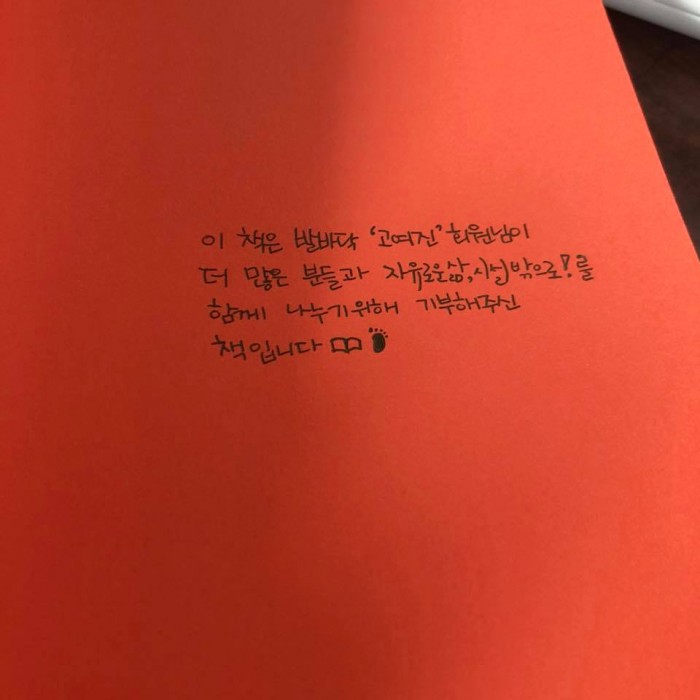 이 책은 발바닥 '고여진' 회원님이
더 많은 분들과 자유로운삶, 시설밖으로!를
함께 나누기위해 기부해주신
책입니다